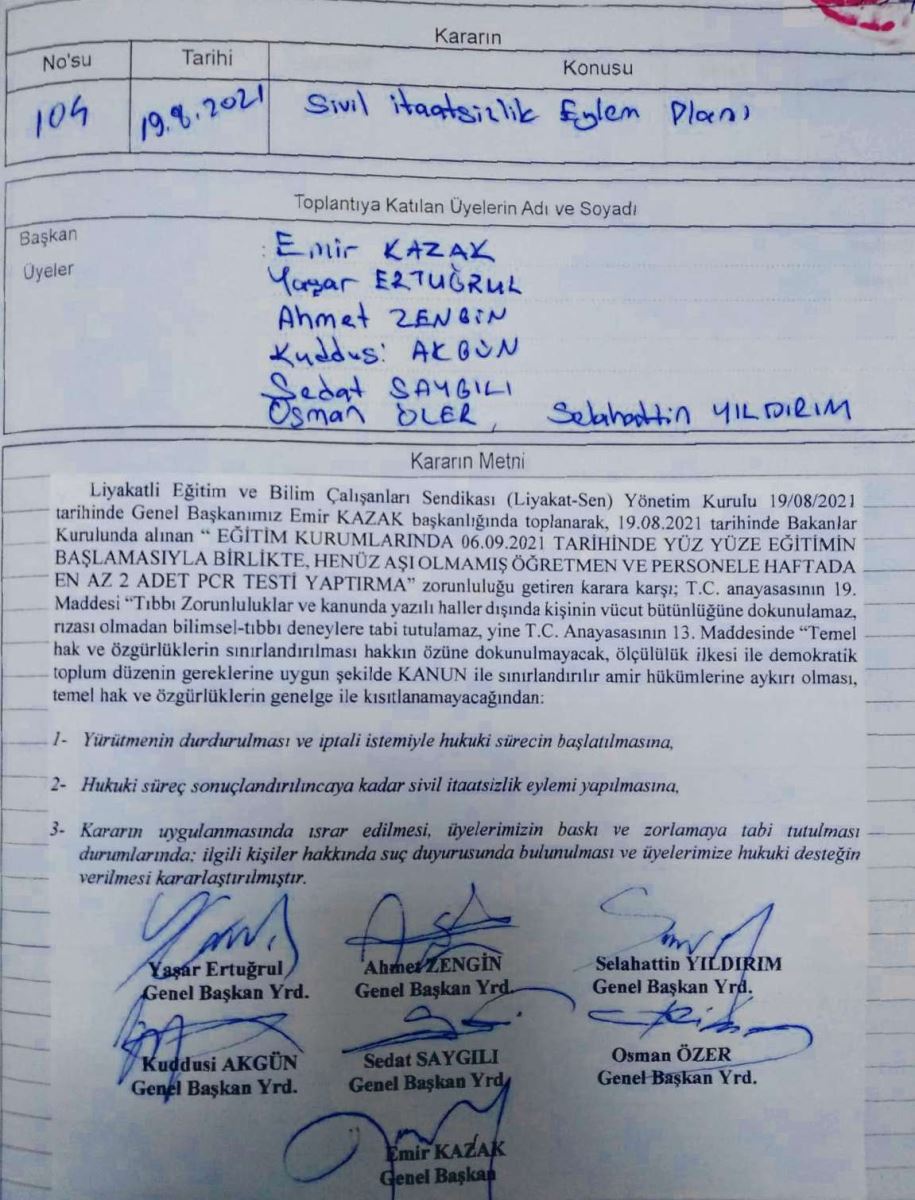 Kararın
No'su
Tarihi
Konusu
104
19.8.2021
Sivil itaatsizlik Eylem Planı
Toplantıya Katılan Üyelerin Adı ve Soyadı
Başkan : Emir KAZAK
Üyeler
Yaşar ERTUĞRUL
Ahmet ZENGİN
Kuddusi AKGÜN
Sedat SAYGILI
Osman ÖZER, Selahattin YILDIRIM
Kararın Metni
Liyakatli Eğitim ve Bilim Çalışanları Sendikası (Liyakat-Sen) Yönetim Kurulu 19/08/2021
tarihinde Genel Başkanımız Emir KAZAK başkanlığında toplanarak, 19.08.2021 tarihinde Bakanlar
Kurulunda alınan “ EĞİTİM KURUMLARINDA 06.09.2021 TARİHİNDE YÜZ YÜZE EĞİTİMİN
BAŞLAMASIYLA BİRLİKTE, HENÜZ AŞI OLMAMIŞ ÖĞRETMEN VE PERSONELE HAFTADA
EN AZ 2 ADET PCR TESTİ YAPTIRMA” zorunluluğu getiren karara karşı; T.C. anayasasının 19.
Maddesi “Tıbbı Zorunluluklar ve kanunda yazılı haller dışında kişinin vücut bütünlüğüne dokunulamaz,
rızası olmadan bilimsel-tıbbı deneylere tabi tutulamaz, yine T.C. Anayasasının 13. Maddesinde “Temel
hak ve özgürlüklerin sınırlandırılması hakkın özüne dokunulmayacak, ölçülülük ilkesi ile demokratik
toplum düzenin gereklerine uygun şekilde KANUN ile sınırlandırılır amir hükümlerine aykırı olması,
temel hak ve özgürlüklerin genelge ile kısıtlanamayacağından:
1- Yürütmenin durdurulması ve iptali istemiyle hukuki sürecin başlatılmasına,
2- Hukuki süreç sonuçlandırılıncaya kadar sivil itaatsizlik eylemi yapılmasına,
3- Kararın uygulanmasında ısrar edilmesi, üyelerimizin baskı ve zorlamaya tabi tutulması
durumlarında; ilgili kişiler hakkında suç duyurusunda bulunulması ve üyelerimize hukuki desteğin
verilmesi kararlaştırılmıştır.
Yaşar Ertuğrul
Genel Başkan Yrd.
Ahmet ZENGİN
Genel Başkan Yrd.
Selahattin YILDIRIM
Genel Başkan Yrd.
Kuddusi AKGÜN
Genel Başkan Yrd.
Sedat SAYGILI
Genel Başkan Yrd.
Osman ÖZER
Genel Başkan Yrd.
Emir KAZAK
Genel Başkan